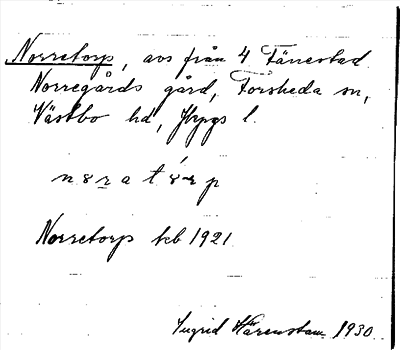 Norretorp, avs från 4 Tånestad
Norregårds gård, Forsheda sn,
Västbo hd, Jbpgs l.
Norretorp kb 1921
Ingrid Härenstam 1930